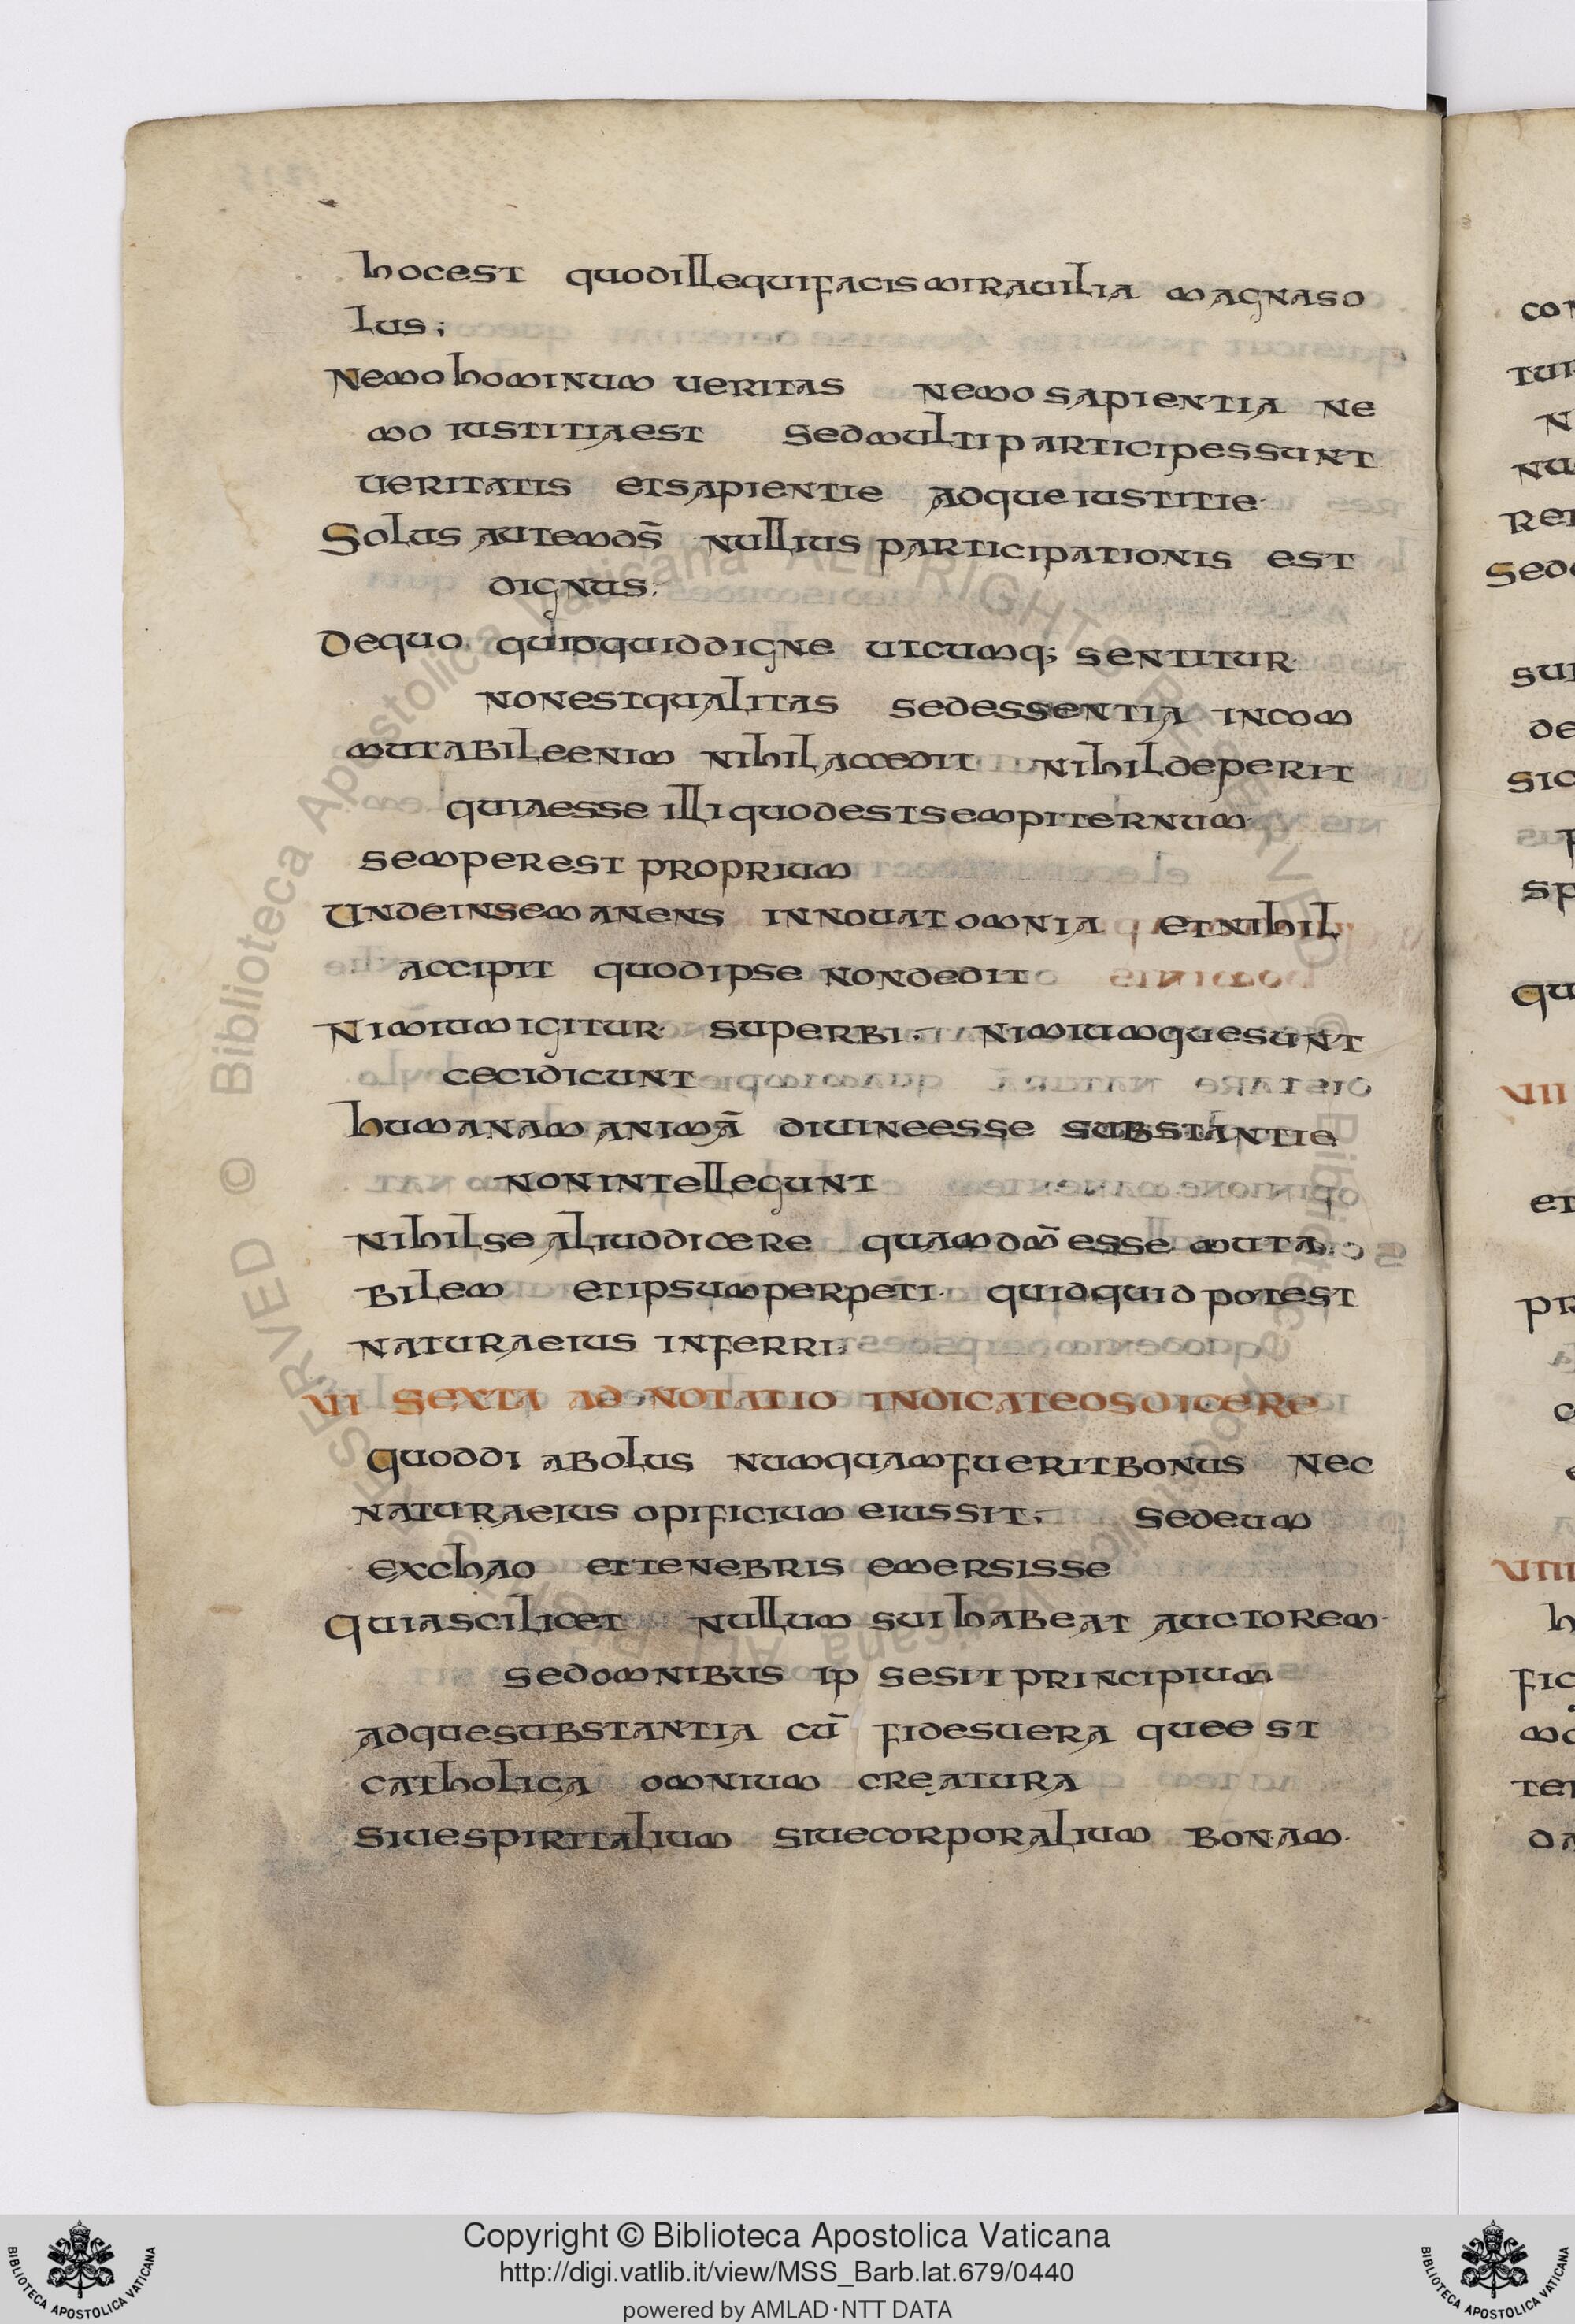 hocest quodillequifacis mirauilia magnaso
lus;
Nemo hominum ueritas nemo sapientia ne
mo iustitiaest sedmulti participessunt
ueritatis etsapientie adqueiustitie·
Solus autemds̄ nullius participationis est
dignus.
Dequo quidquiddigne utcumq; sentitur
nonestqualitas sedessentia incom
mutabileenim nihil accedit nihildeperit
quiaesse illi quodestsempiternum
semperest proprium
Undeinsemanens innouat omnia etnihil
accipit quodipse nondedit
Nimiumigitur· superbi· nimiumquesunt
cecidicunt
humanam animā diuineesse substantie
nonintellegunt
nihilse aliuddicere quamdm̄ esse muta
bilem etipsumperpeti· quidquid potest
naturaeius inferri·
VI Sexta adnotatio indicateosdicere
quoddi abolus numquamfueritbonus nec
naturaeius opificium eiussit· sedeum
exchao ettenebris emersisse
Quiascilicet nullum sui habeat auctorem·
sedomnibus ip sesit principium
adquesubstantia cū fidesuera quee st
catholica omnium creatura
siuespiritalium siuecorporalium bonam·
Copyright © Biblioteca Apostolica Vaticana
http://digi.vatlib.it/view/MSS_Barb.lat.679/0440
powered by AMLAD·NTT DATA